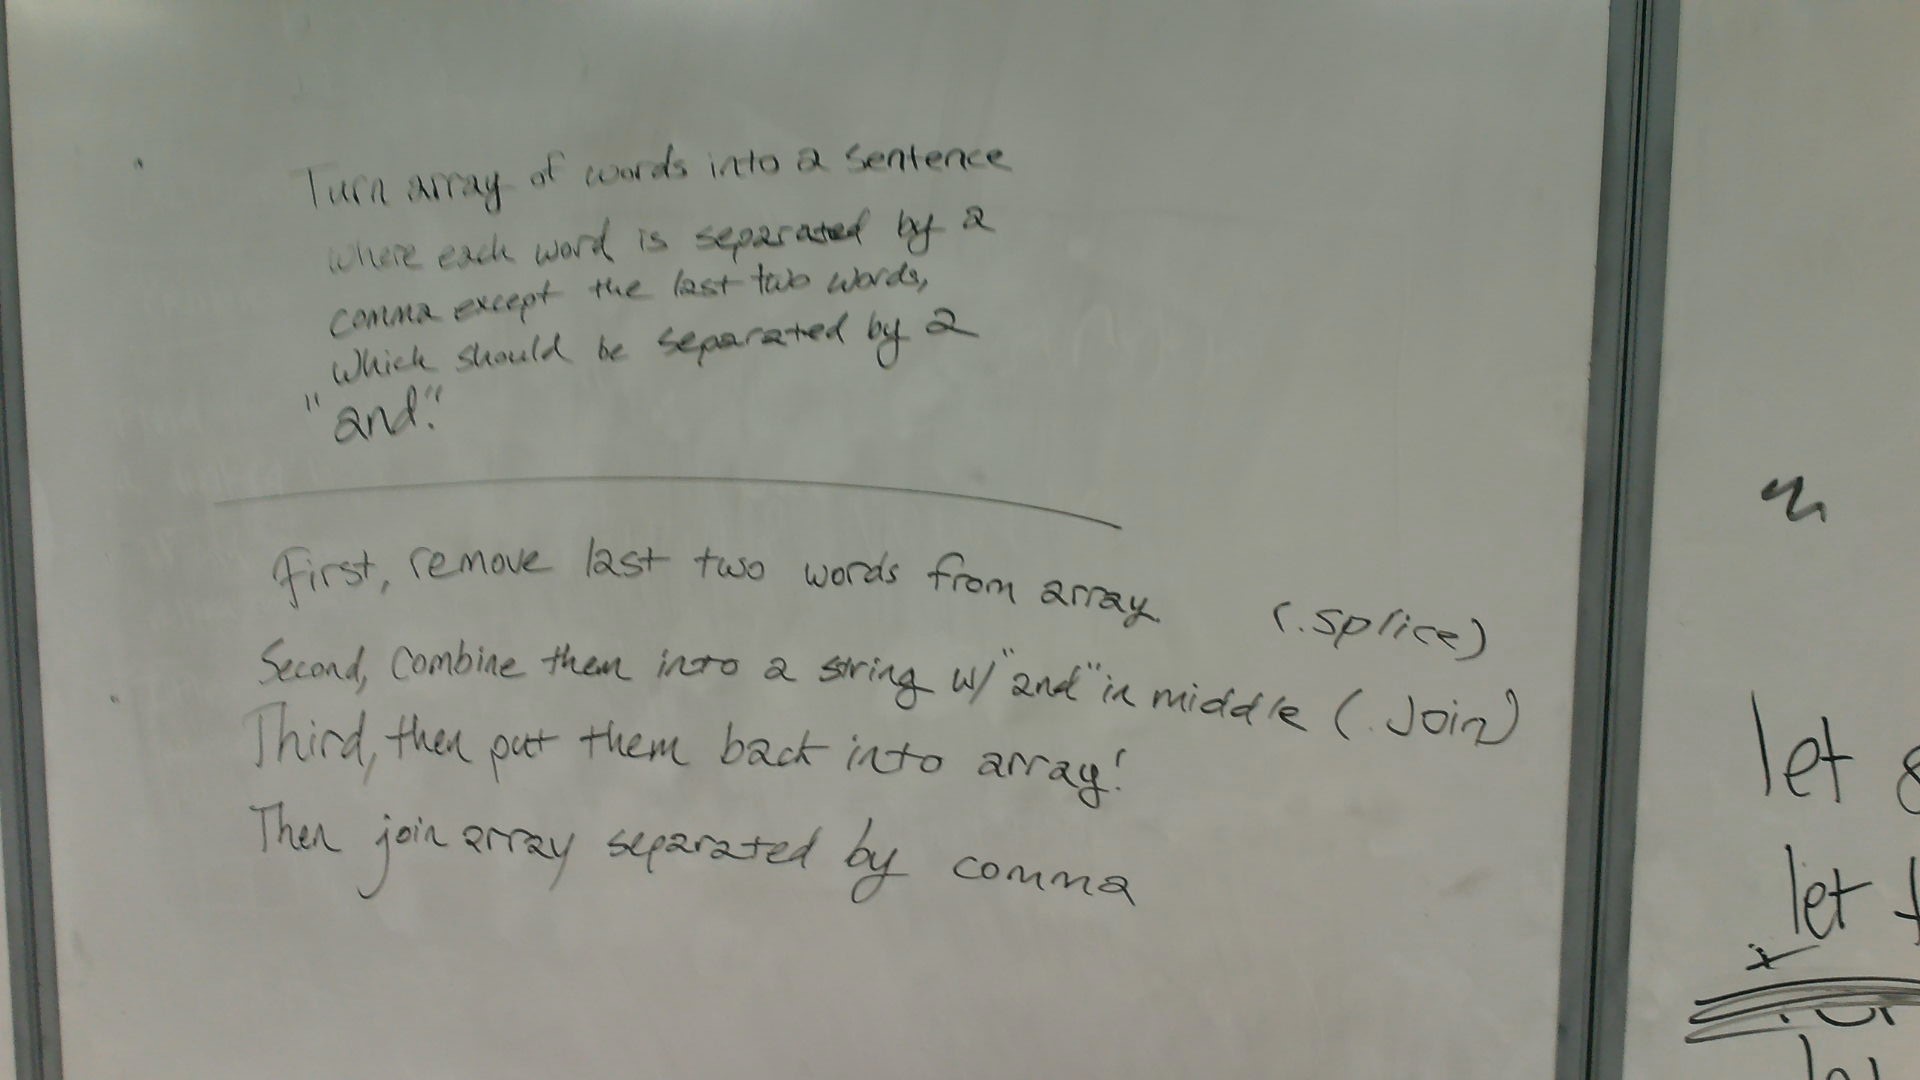 Turn array of words into a sentence
where each word is separated by a
comma except the last two words,
which should be separated by a
"and."
First, remove last two words from array (.splice)
Second, combine them into a string w/ "and" in middle (.Join)
Third, then put them back into array!
Then join array separated by comma
let
let